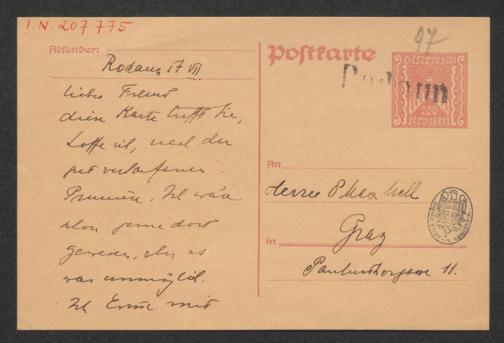 I.N. 207.775
97
Absender:
Postkarte
Rodaun
ÖSTERREICH
200
KRONEN
Rodaun 17 VII
lieber Freund
diese Karte trifft Sie,
hoffe ich, nach der
gut verlaufenen
Première. Ich wäre
schon gerne dort
gewesen, aber es
war unmöglich.
Ich
mit
An
Herrn Max Mell
in
Graz
Paulustorgasse 11.